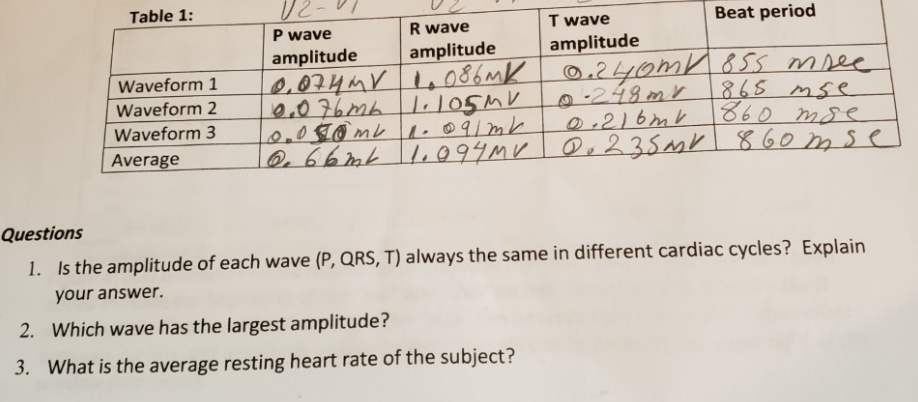 Table 1:
V2-V1
V2
P wave amplitude R wave amplitude T wave amplitude Beat period
Waveform 1 0.074mV 1.086mV 0.240mV 855 msec
Waveform 2 0.076mV 1.105mV 0.248mV 865 mse
Waveform 3 mV 1.091mV 0.216mV 860 mse
Average 0.66mV 1.094mV 0.235mV 860 mse
Questions
1. Is the amplitude of each wave (P, QRS, T) always the same in different cardiac cycles? Explain
your answer.
2. Which wave has the largest amplitude?
3. What is the average resting heart rate of the subject?